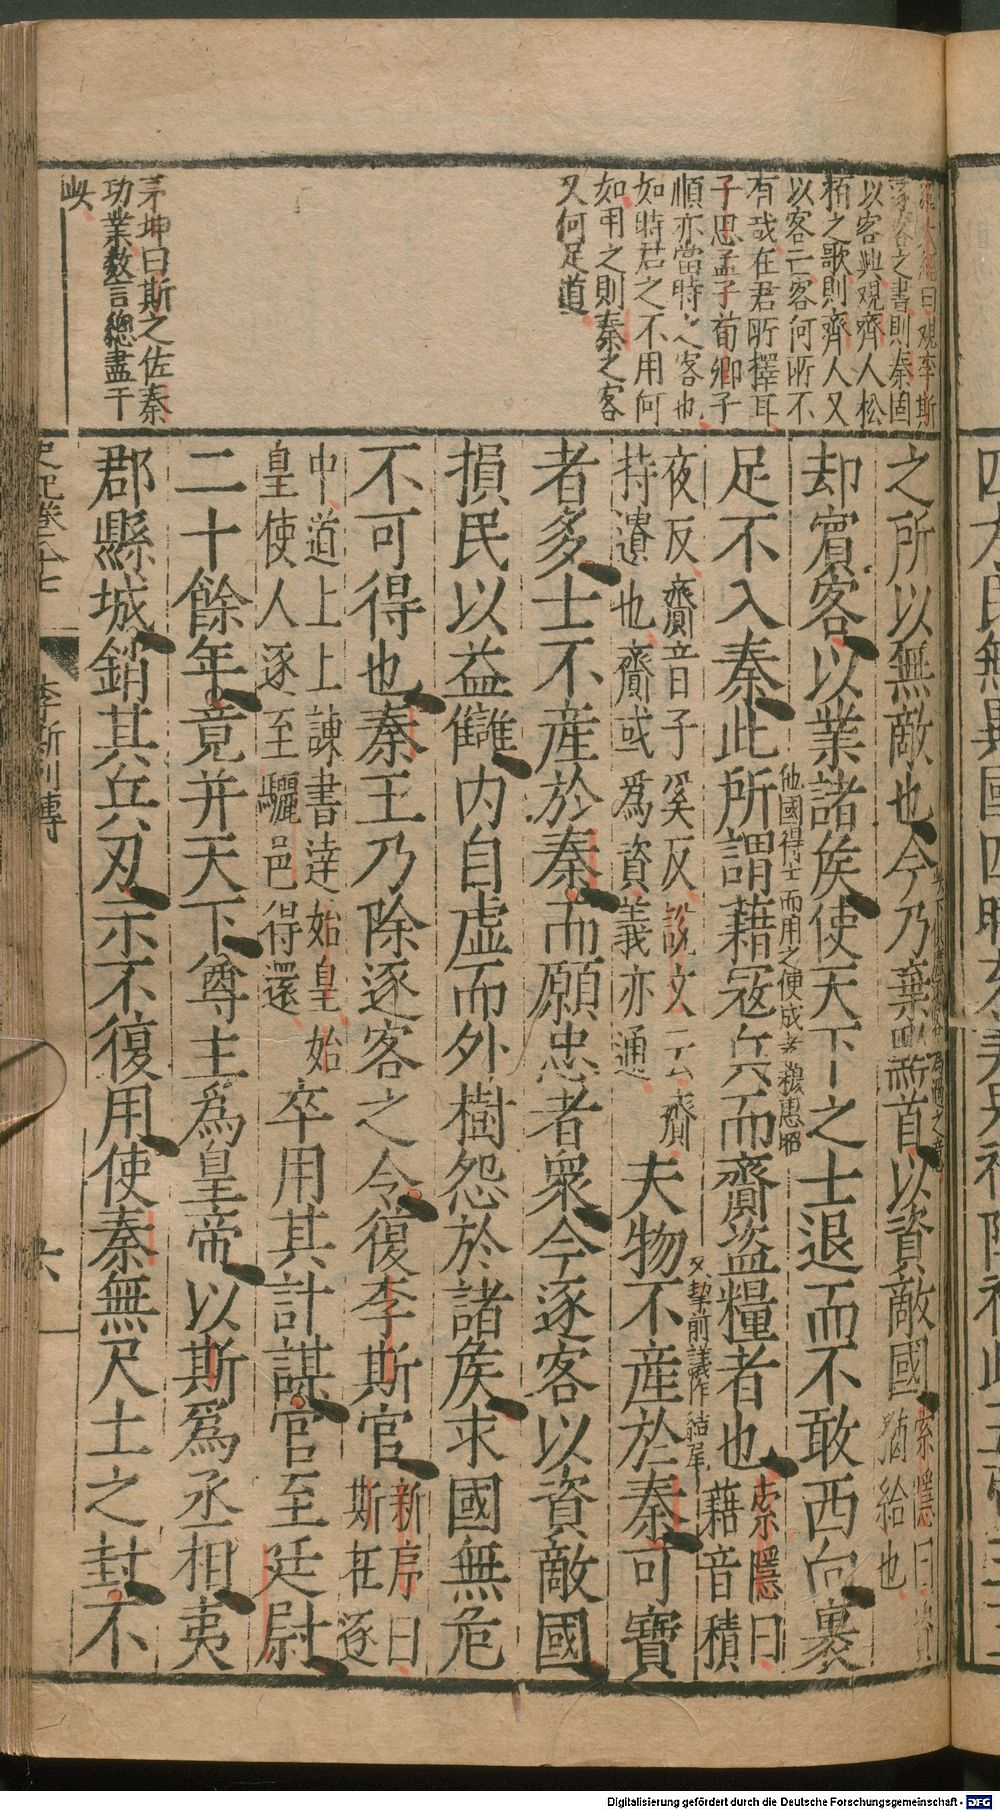 羅大經曰觀李斯
逐客之書則秦固
以客興觀齊人松
栢之歌則齊人又
以客亡客何所不
有哉在君所擇耳
子思孟子荀卿子
順亦當時之客也
如時君之不用何
如用之則秦之客
又何足道
茅坤曰斯之佐秦
功業數言總盡于
此
之所以無敵也今乃棄黔首以資敵國索隱曰資猶給也
却賔客以業諸矦使天下之士退而不敢西向裹
他國得士而用之便成
足不入秦此所謂藉寇兵而齎盜糧者也索隱曰藉音積
又挈前議作結尾
夜反齎音子奚反説文云齎
持遺也齎或爲資義亦通
夫物不産於秦可寶
者多士不産於秦而願忠者衆今逐客以資敵國
損民以益讎内自虚而外樹怨於諸矦求國無危
不可得也秦王乃除逐客之令復李斯官新序曰斯在逐
中道上上諌書達始皇始
皇使人逐至驪邑得還
卒用其計謀官至廷尉
二十餘年竟并天下尊主爲皇帝以斯爲丞相夷
郡縣城銷其兵刃示不復用使秦無尺土之封不
史記卷八十七
李斯列傳
六
Digitalisierung gefördert durch die Deutsche Forschungsgemeinschaft - DFG